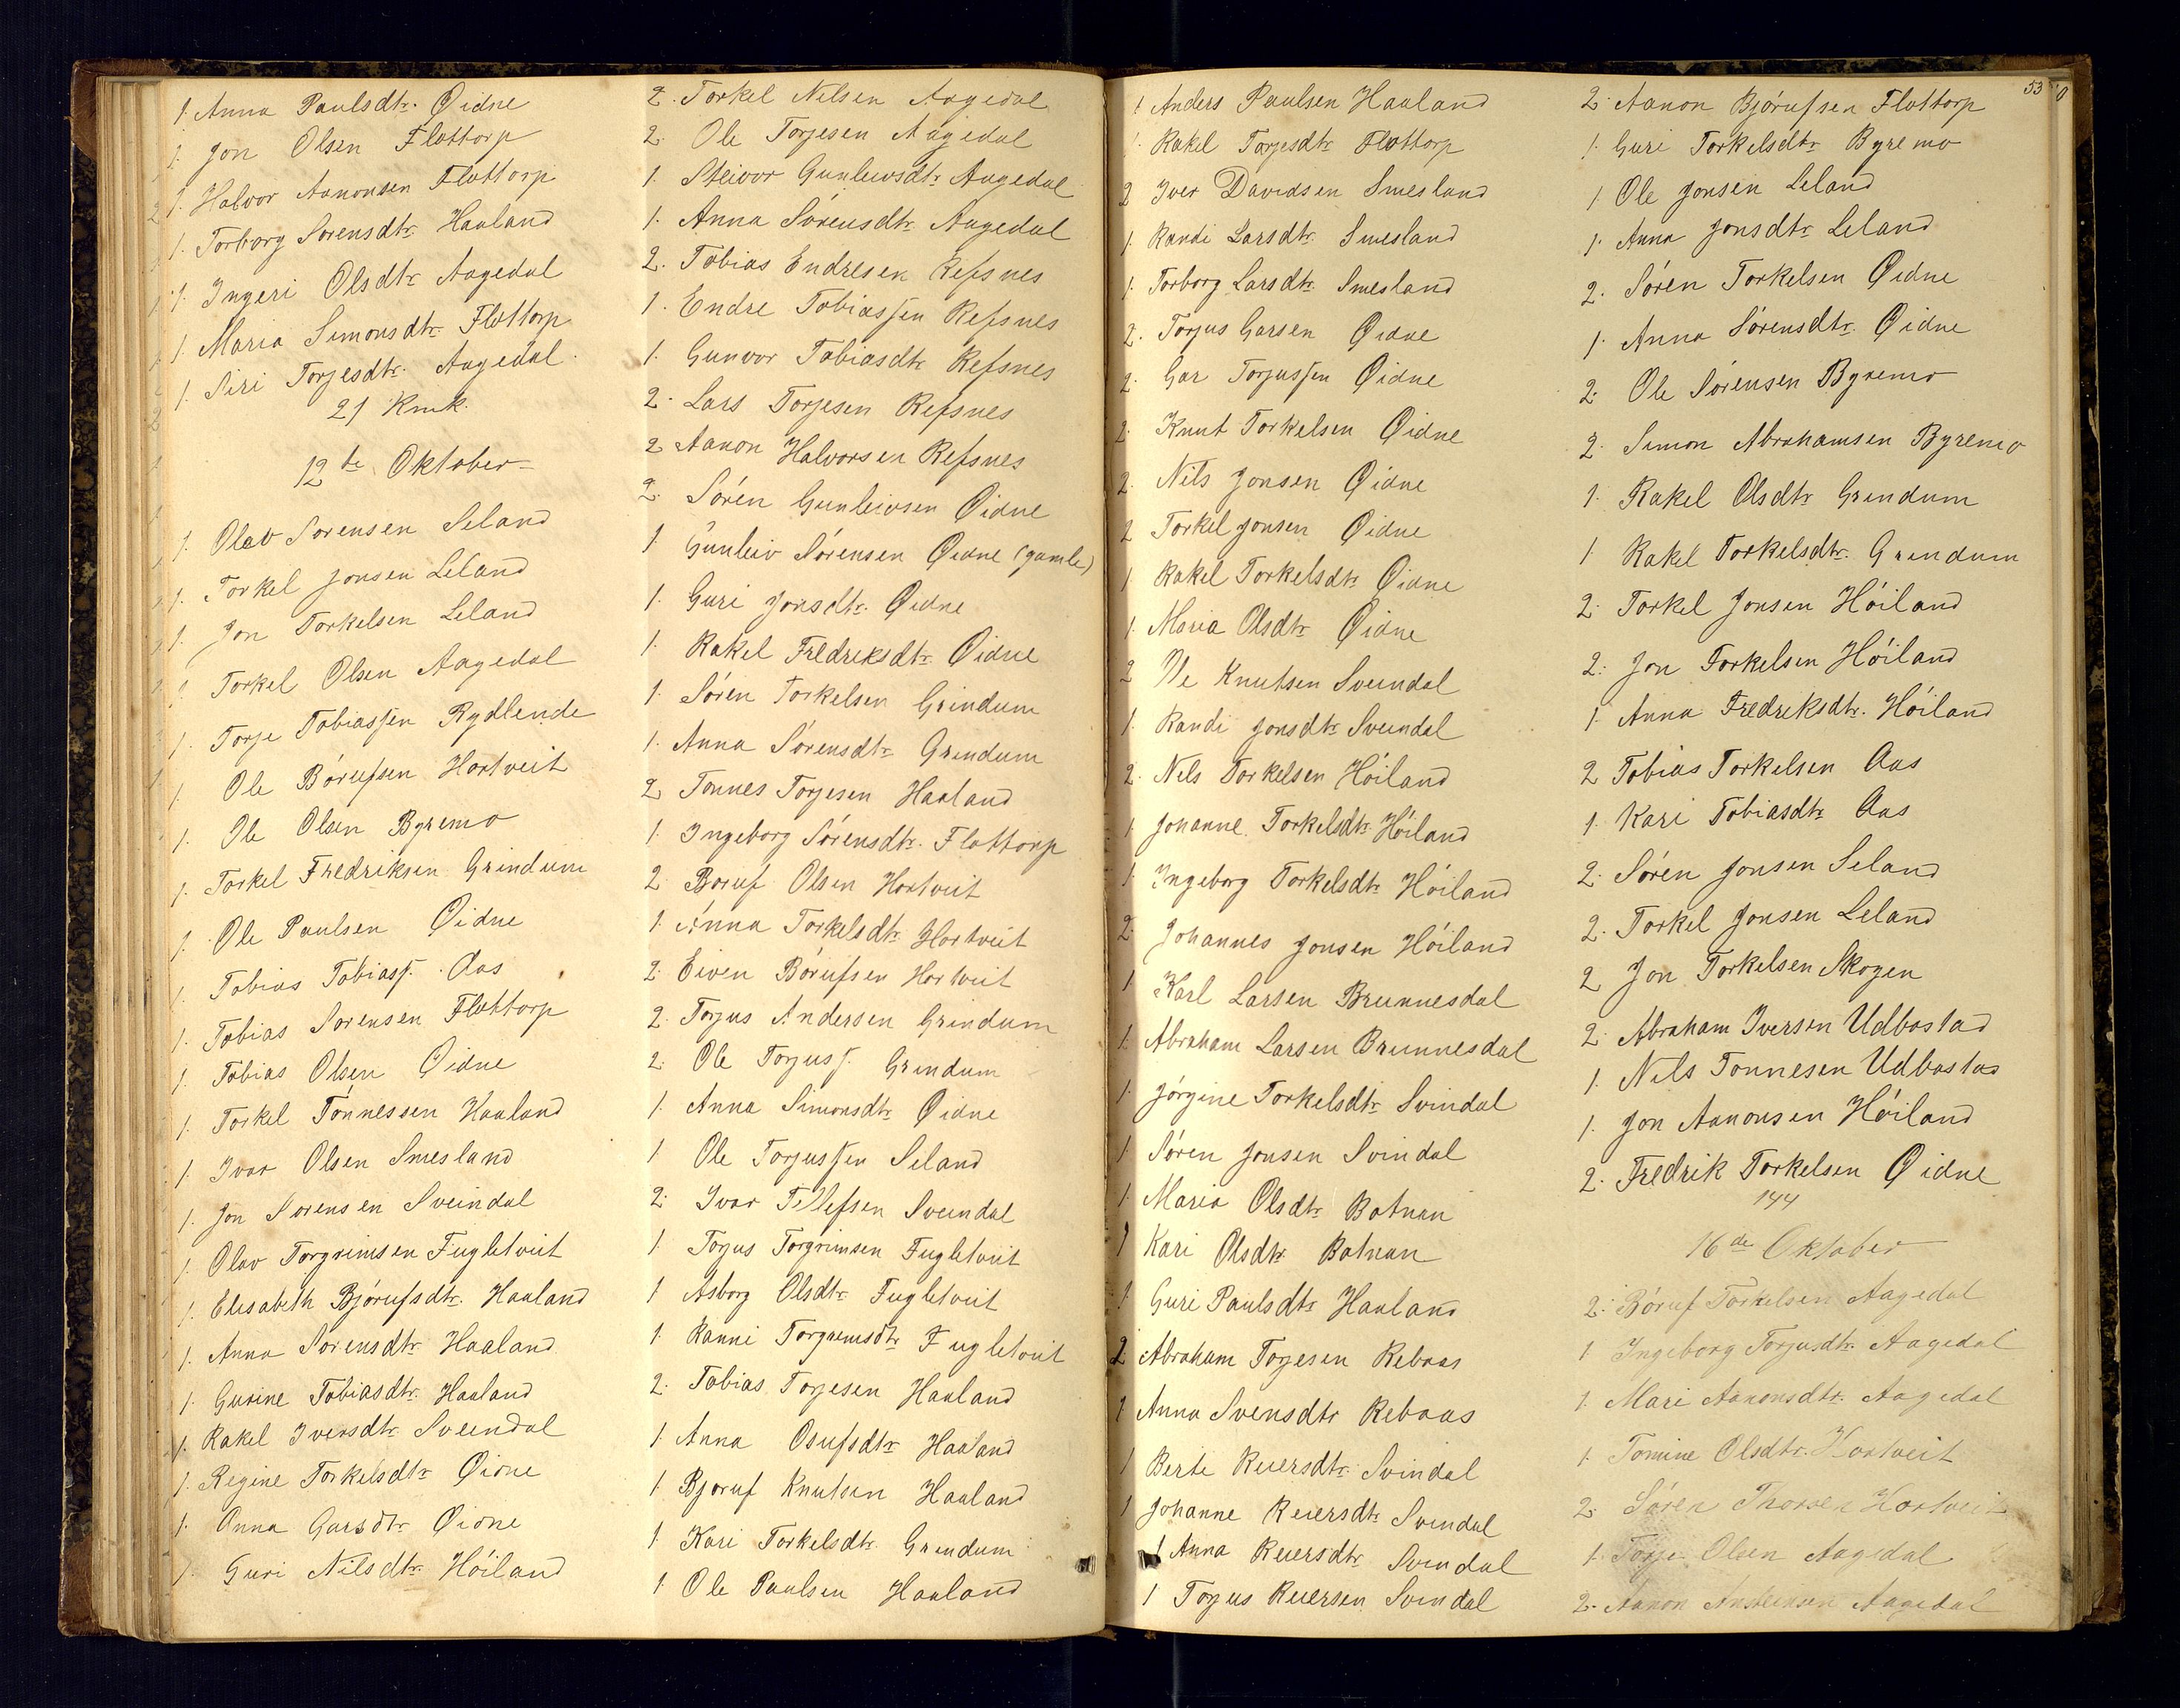 1. Anna Paulsdtr. Øidne
1. Jon Olsen Flottorp
1. Halvor Aanonsen Flottorp
1. Torborg Sørensdtr. Haaland
1. Ingeri Olsdtr. Aagedal
1. Maria Simonsdtr. Flottorp
1. Siri Torjesdtr. Aagedal.
21 Kmk.
12te Oktober
1. Olav Sørensen Seland
1. Torkel Jonsen Leland
1. Jon Torkelsen Leland
1. Torkel Olsen Aagedal
1. Torje Tobiassen Rydlende
1. Ole Børufsen Hortveit
1. Ole Olsen Byremo
1. Torkel Fredriksen Grindum
1. Ole Paulsen Øidne
1. Tobias Tobiass. Aas
1. Tobias Sørensen Flottorp
1. Tobias Olsen Øidne
1. Torkel Tønnessen Haaland
1. Ivar Olsen Smesland
1. Jon Sørensen Sveindal
1. Olav Torgrimsen Fugletveit
1. Elisabeth Bjørufsdtr. Haaland
1. Anna Sørensdtr. Haaland
1. Gurine Tobiasdtr. Haaland
1. Rakel Iversdtr. Sveindal
1. Regine Torkelsdtr. Øidne
1. Anna Garsdtr. Øidne
1. Guri Nilsdtr. Høiland
2. Torkel Nilsen Aagedal
2. Ole Torjesen Aagedal
1. Steivor Gunleivsdtr. Aagedal
1. Anna Sørensdtr. Aagedal
2. Tobias Endresen Refsnes
1. Endre Tobiassen Refsnes
1. Gunvor Tobiasdtr. Refsnes
2. Lars Torjesen Refsnes
2 Aanon Halvorsen Refsnes
2. Søren Gunleivsen Øidne
1 Gunleiv Sørensen Øidne (gamle)
1. Guri Jonsdtr. Øidne
1. Rakel Fredreksdtr. Øidne
1. Søren Torkelsen Grindum
1. Anna Sørensdtr. Grindum
2 Tønnes Torjesen Haaland
1. Ingeborg Sørensdtr. Flottorp
2. Boruf Olsen Hortveit
1. Anna Torkelsdtr. Hortveit
2. Eiven Børufsen Hortveit
2. Torjus Andersen Grindum
2. Ole Torjuss. Grindum
1. Anna Simonsdtr. Øidne
1 Ole Torjussen Seland
2. Ivar Tellefsen Sveindal
1. Torjus Torgrimsen Fugletveit
1 Asborg Olsdtr. Fugletveit
1. Ranni Torgrimsdtr. Fugletveit
2. Tobias Torjesen Haaland
1. Anna Osufsdtr. Haaland
1. Bjøruf Knutsen Haaland
1. Kari Torkelsdtr. Grindum
1. Ole Paulsen Haaland
1 Anders Paulsen Haaland
1. Rakel Torjesdtr. Flottorp
2 Iver Davidsen Smesland
1. Randi Larsdtr. Smesland
1. Torborg Larsdtr. Smesland
2. Torjus Garsen Øidne
2. Gar Torjussen Øidne
2. Knut Torkelsen Øidne
2. Nils Jonsen Øidne
2 Torkel Jonsen Øidne
1 Rakel Torkelsdtr. Øidne
1. Maria Olsdtr. Øidne
2 Ole Knutsen Sveindal
1. Randi Jonsdtr. Sveindal
2. Nels Torkelsen Høiland
1 Johanne Torkelsdtr. Høiland
1. Ingeborg Torkelsdtr. Høiland
2. Johannes Jonsen Høiland
1 Karl Larsen Brunnesdal
1. Abraham Larsen Brunnesdal
1. Jørgine Torkelsdtr. Svindal
1 Søren Jonsen Svindal
1. Maria Olsdtr. Botnan
1 Kari Olsdtr. Botnan
1 Guri Paulsdtr. Haaland
2. Abraham Torjesen Rebaas
1 Anna Svensdtr Rebaas
1 Berte Reiersdtr. Svindal
1 Johanne Reiersdtr. Svindal
1 Anna Reiersdtr. Svindal
1 Torjus Reiersen Svindal
53
2. Aanon Bjørufsen Flottorp
1. Guri Torkelsdtr. Byremo
1 Ole Jonsen Leland
1. Anna Jonsdtr. Leland
2. Søren Torkelsen Øidne
1. Anna Sørensdtr. Øidne
2. Ole Sørensen Byremo
2. Simon Abrahamsen Byremo
1. Rakel Olsdtr. Grindum
1 Rakel Torkelsdtr. Grindum
2. Torkel Jonsen Høiland
2. Jon Torkelsen Høiland
1. Anna Fredreksdtr. Høiland
2 Tobias Torkelsen Aas
1. Kari Tobiasdtr. Aas
2. Søren Jonsen Seland
2. Torkel Jonsen Leland
2 Jon Torkelsen Skogen
2. Abraham Iversen Udbostad
1. Nils Tønnesen Udbostad
1. Jon Aanonsen Høiland
2. Fredrik Torkelsen Øidne
144
16de Oktober
2. Børuf Torkelsen Aagedal
1 Ingeborg Torjusdtr. Aagedal
1. Mari Aanonsdtr. Aagedal
1. Tomine Olsdtr. Hortveit
2. Søren Thorsen Hortveit
1. Torje Olsen Aagedal
2. Aanon Ansteinsen Aagedal